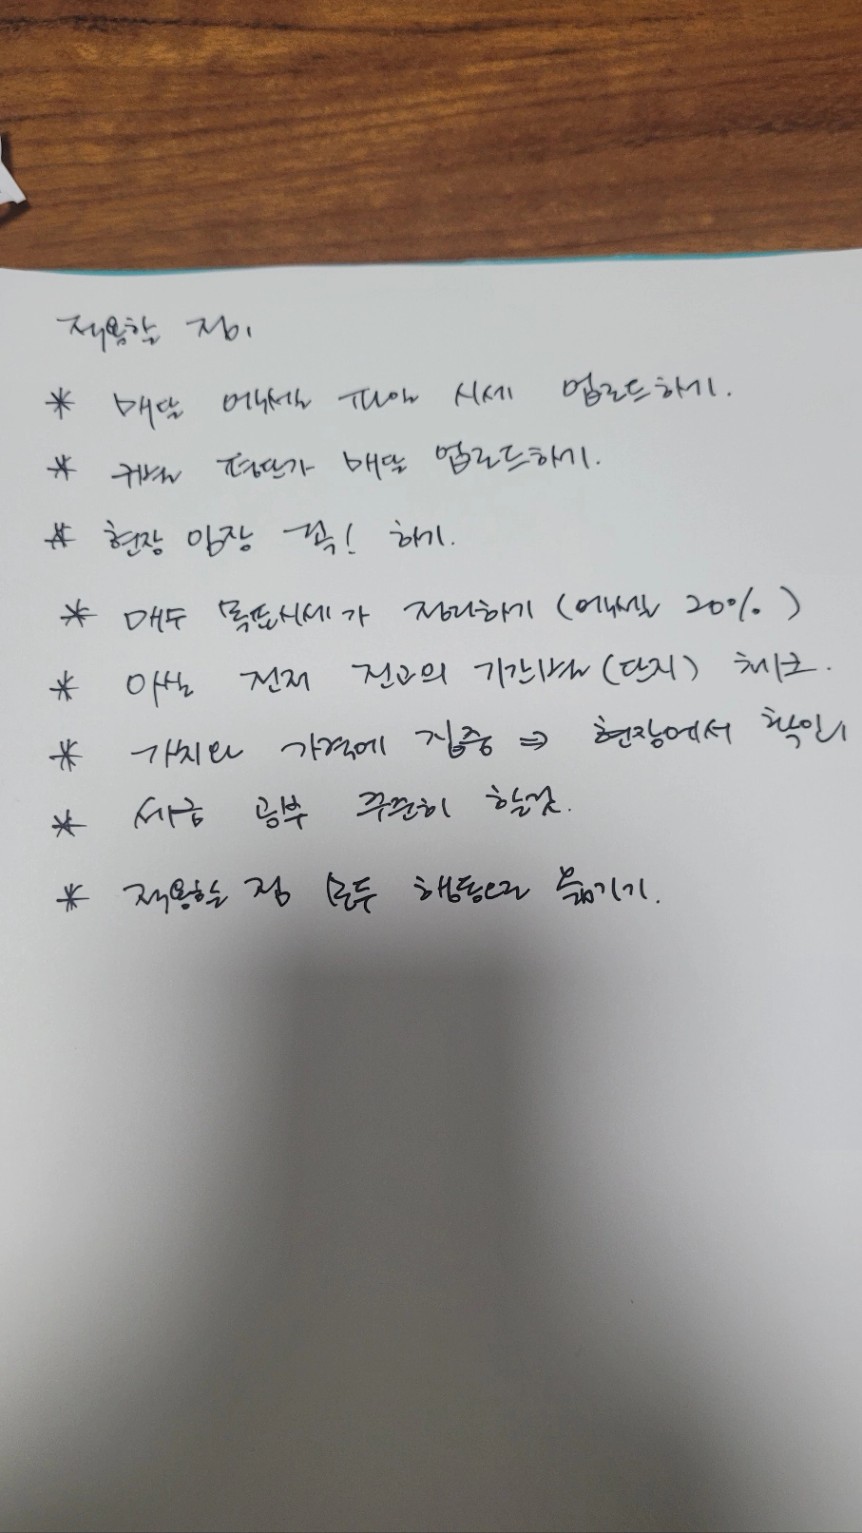 적용할 점
* 매달 엑셀 파일 시세 업로드하기.
* 구별 평단가 매달 업로드하기.
* 현장 임장 꼭! 하기.
* 매수 목표시세가 정리하기 (엑셀 20%)
* 아실 전저 전고의 기간별 (단지) 체크.
* 가치와 가격에 집중 ⇒ 현장에서 확인
* 세금 공부 꾸준히 할것.
* 적용할 점 모두 행동으로 옮기기.